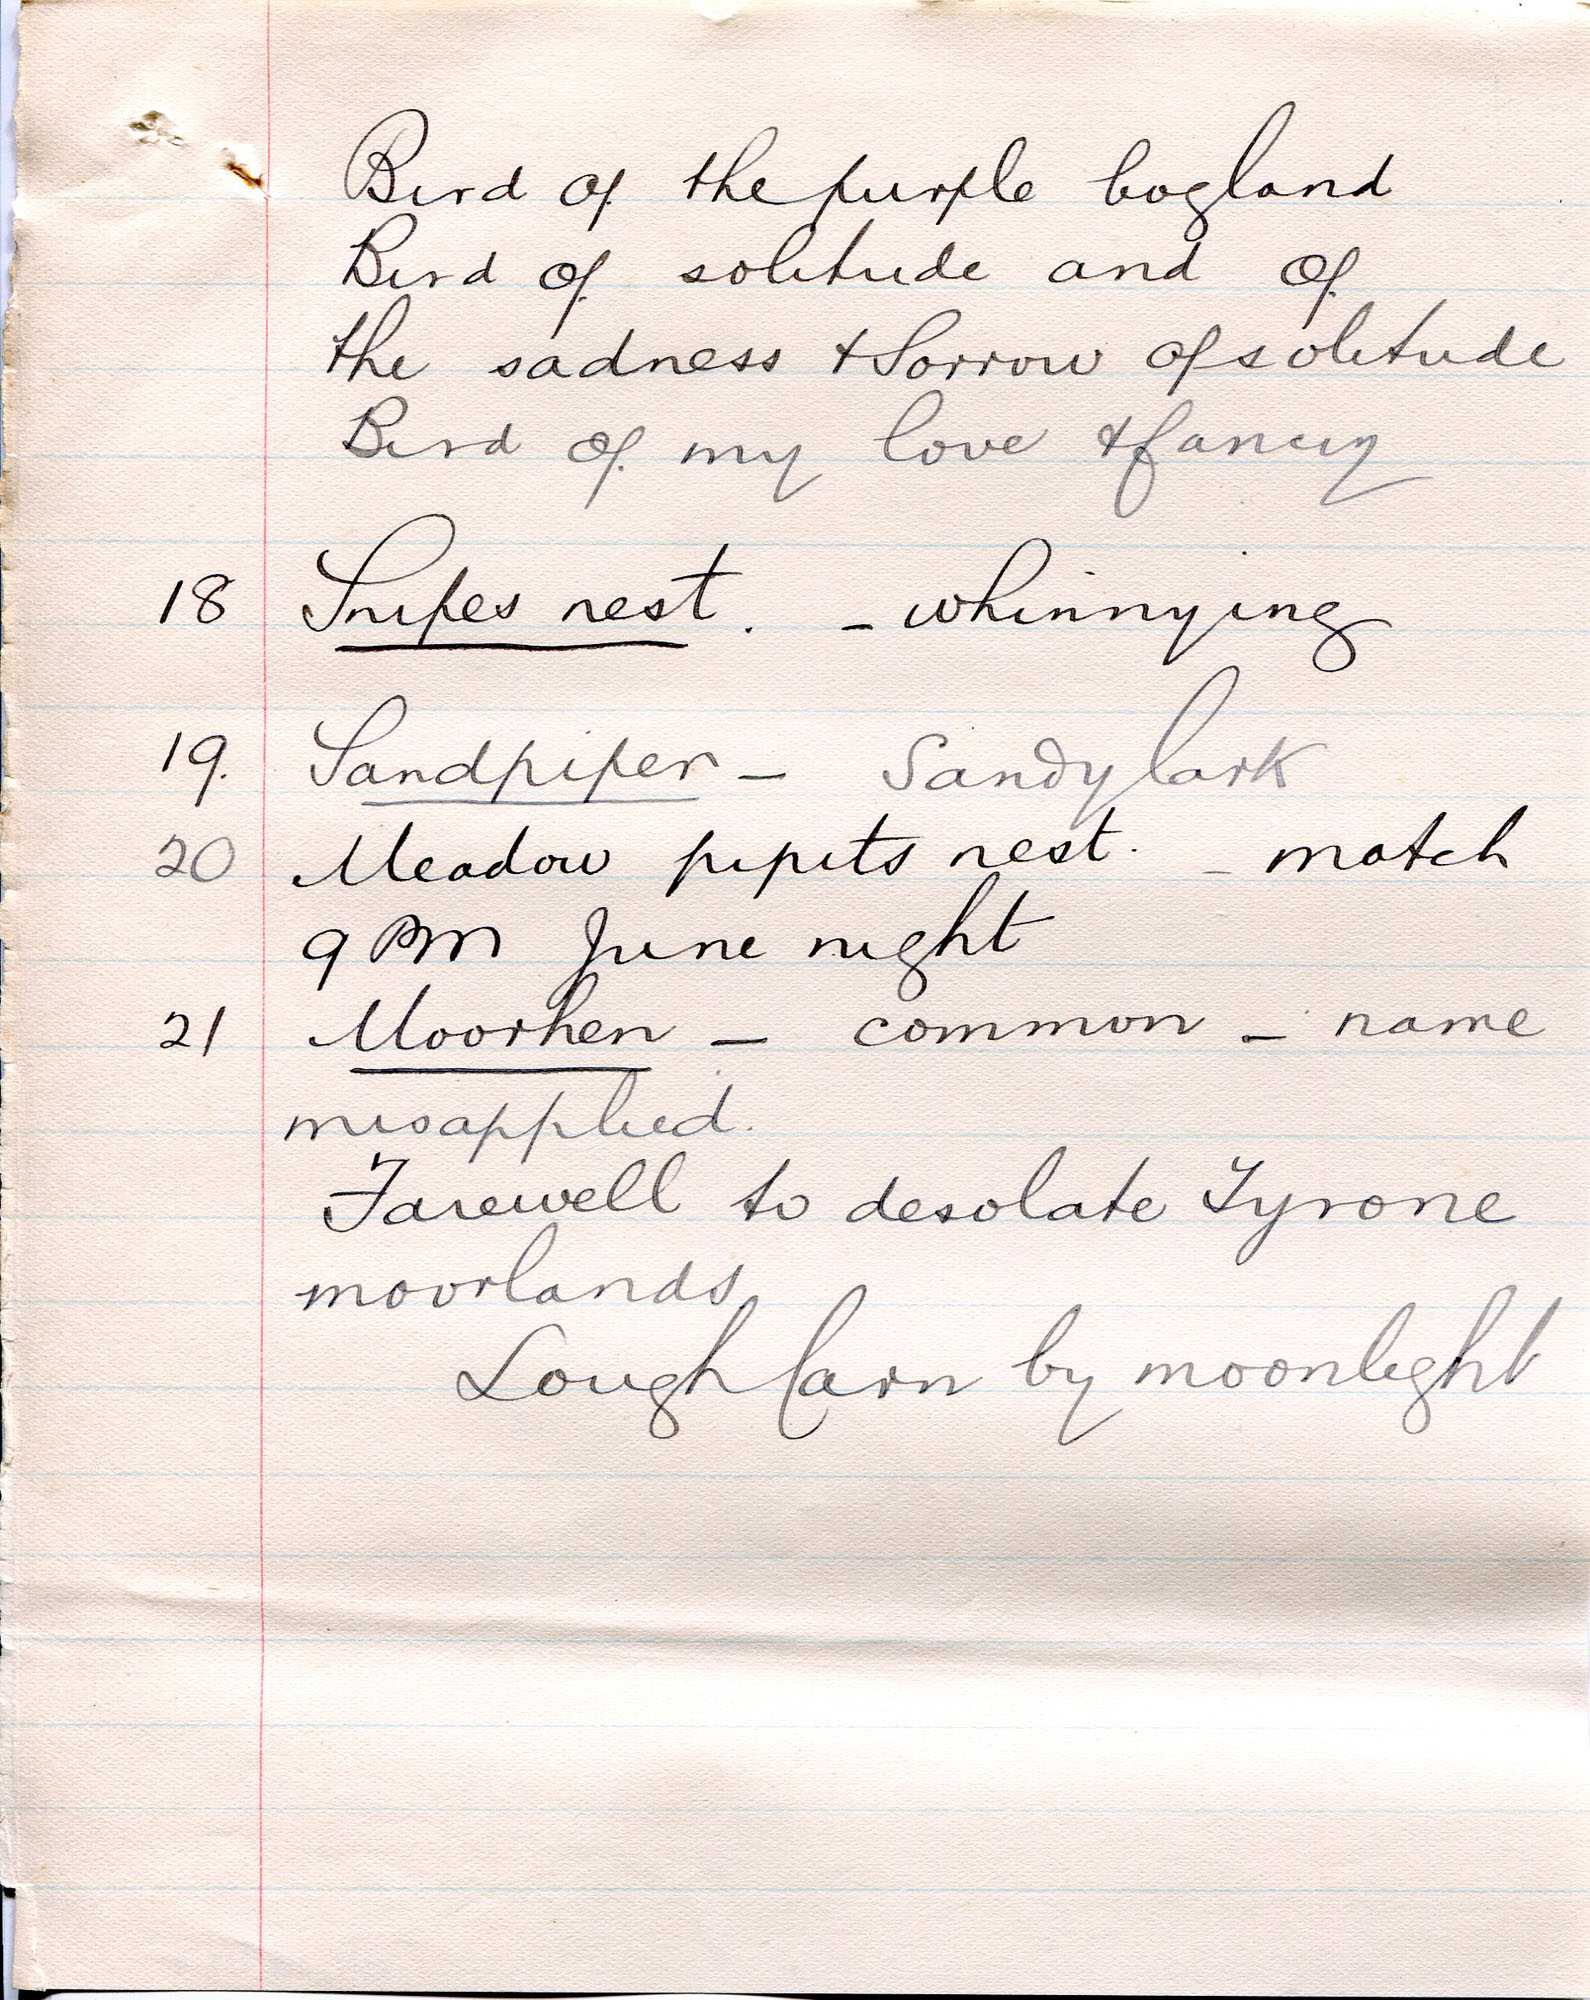 Bird of the purple bogland
Bird of solitude and of
the sadness & Sorrow of solitude
Bird of my love & fancy
18 Snipes nest. - whinnying
19. Sandpiper - Sandylark
20 Meadow pipits nest. - match
9 PM June night
21 Moorhen - common - name
misapplied.
Farewell to desolate Tyrone
moorlands
Lough Carn by moonlight